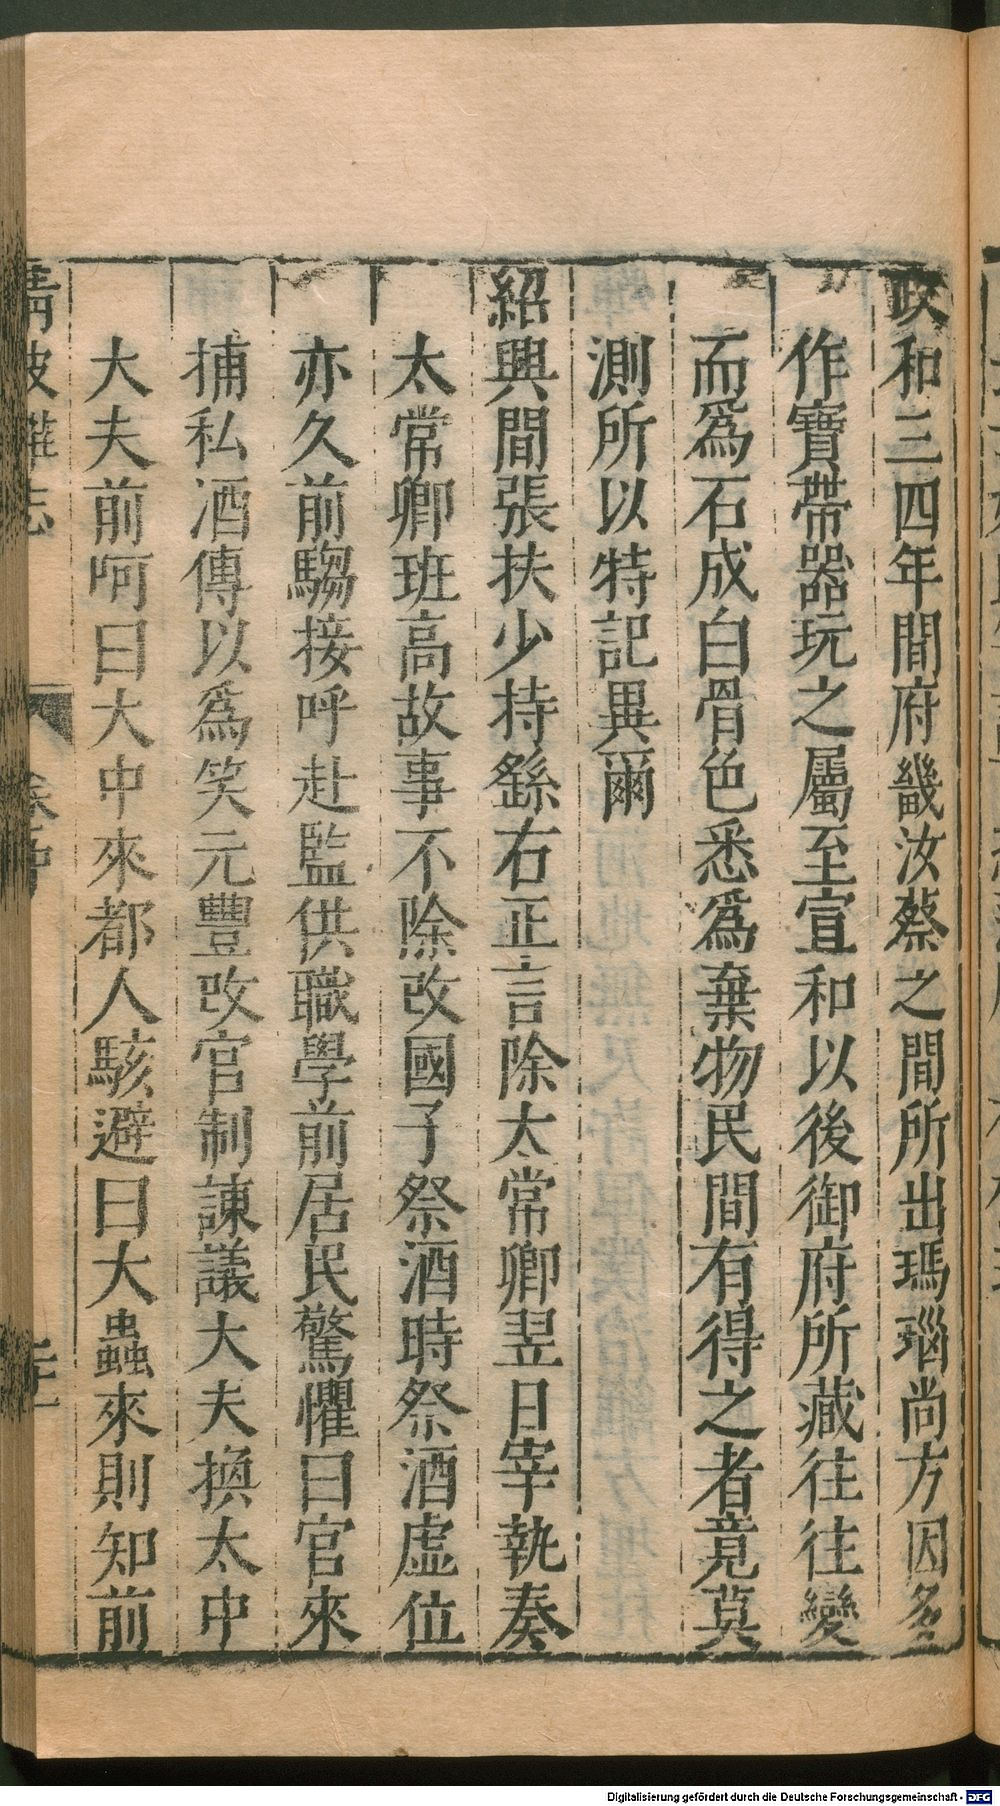 政和三四年間府畿汝蔡之間所出瑪瑙尚方因多
作寶帶器玩之屬至宣和以後御府所藏往往變
而爲石成白骨色悉爲棄物民間有得之者竟莫
測所以特記異爾
紹興間張扶少持繇右正言除太常卿翌日宰執奏
太常卿班高故事不除改國子祭酒時祭酒虛位
亦久前騶接呼赴監供職學前居民驚懼曰官來
捕私酒傳以爲笑元豐改官制諫議大夫換太中
大夫前呵曰大中來都人駭避曰大蟲來則知前
清波雜志
Digitalisierung gefördert durch die Deutsche Forschungsgemeinschaft - DFG